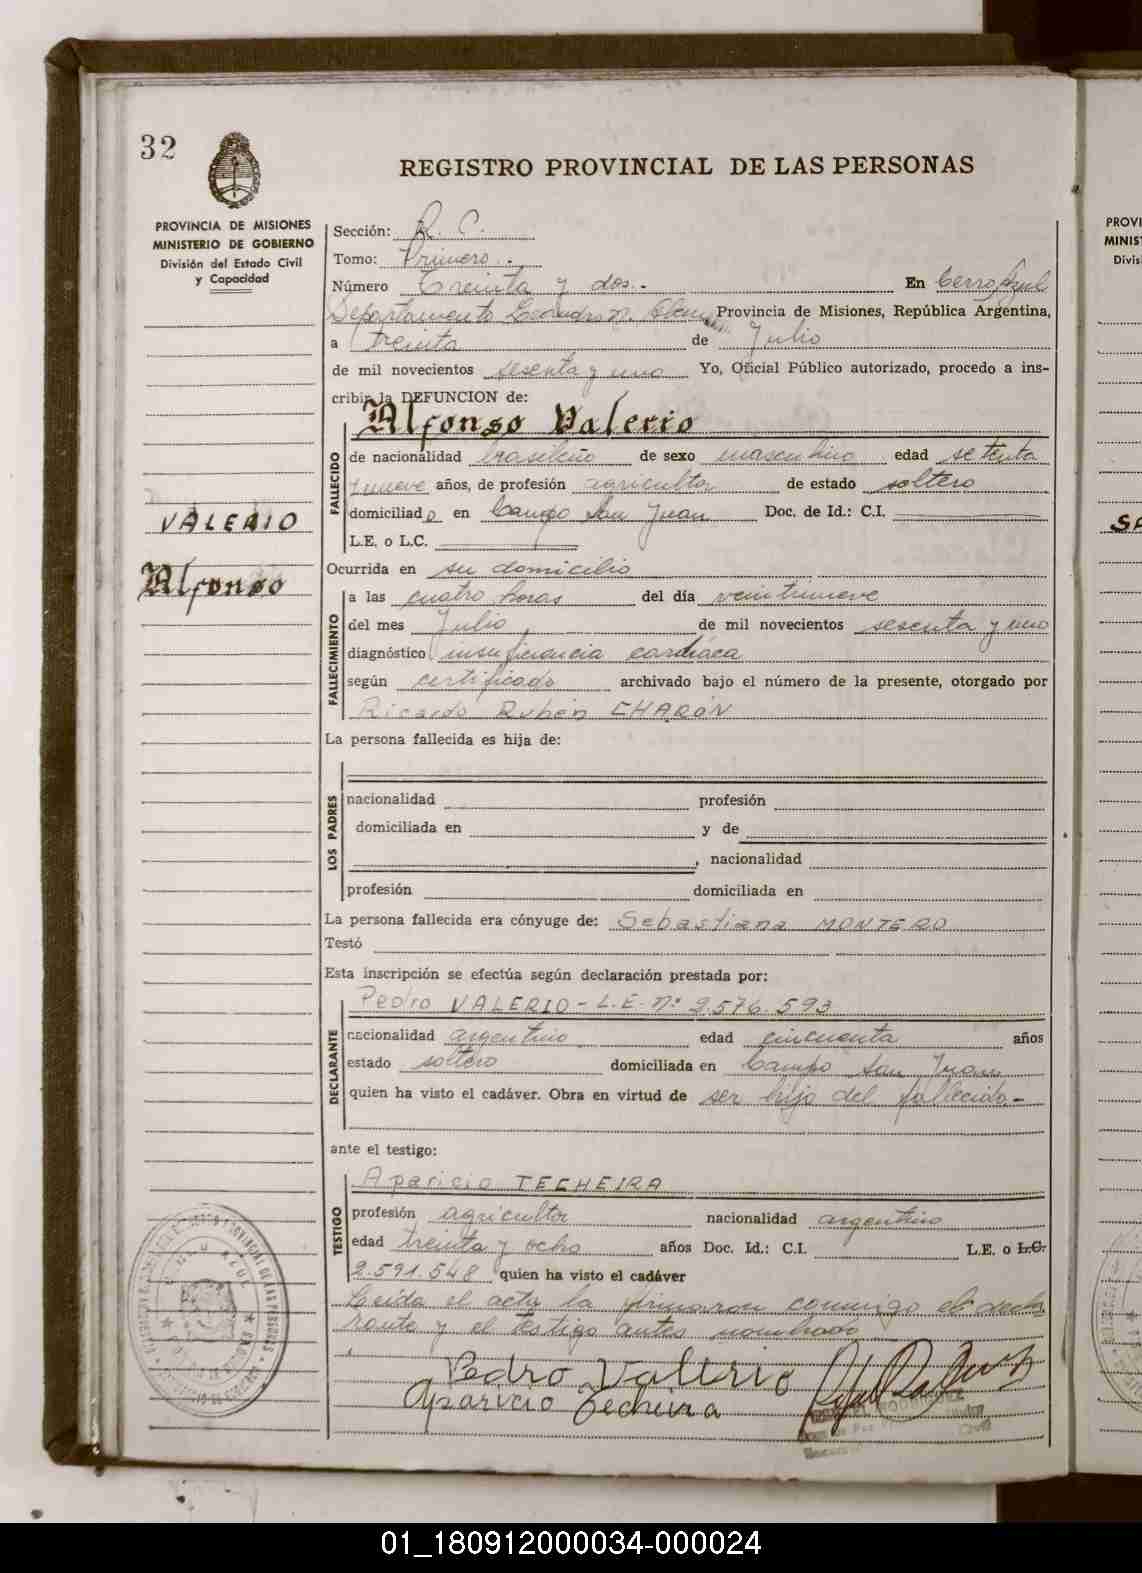 32
REGISTRO PROVINCIAL DE LAS PERSONAS
PROVINCIA DE MISIONES
MINISTERIO DE GOBIERNO
División del Estado Civil
y Capacidad
VALERIO
Alfonso
Sección: R. C.
Tomo: Primero.-
Número Treinta y dos.- En Cerro Azul
Departamento Leandro N. Alem Provincia de Misiones, República Argentina,
a treinta de Julio
de mil novecientos sesenta y uno Yo, Oficial Público autorizado, procedo a ins-
cribir la DEFUNCION de:
Alfonso Valerio
FALLECIDO
de nacionalidad brasileño de sexo masculino edad setenta
y nueve años, de profesión agricultor de estado soltero
domiciliado en Campo San Juan Doc. de Id.: C.I.
L.E. o L.C.
Ocurrida en su domicilio
FALLECIMIENTO
a las cuatro horas del día veintinueve
del mes Julio de mil novecientos sesenta y uno
diagnóstico insuficiencia cardíaca
según certificado archivado bajo el número de la presente, otorgado por
Ricardo Ruben CHARÓN
La persona fallecida es hija de:
LOS PADRES
nacionalidad profesión
domiciliada en y de
, nacionalidad
profesión domiciliada en
La persona fallecida era cónyuge de: Sebastiana MONTERO
Testó
Esta inscripción se efectúa según declaración prestada por:
Pedro VALERIO - L.E. nº 2.576.593
DECLARANTE
nacionalidad argentino edad cincuenta años
estado soltero domiciliada en Campo San Juan
quien ha visto el cadáver. Obra en virtud de ser hijo del fallecido-
ante el testigo:
Aparicio TECHEIRA
TESTIGO
profesión agricultor nacionalidad argentino
edad treinta y ocho años Doc. Id.: C.I. L.E. o L.C.
2.591.548 quien ha visto el cadáver
Leida el acta la firmaron conmigo el decla
rante y el testigo antes nombrado
Pedro Valerio
Aparicio Techeira
PROVI
MINIST
Divis
SA
01_180912000034-000024